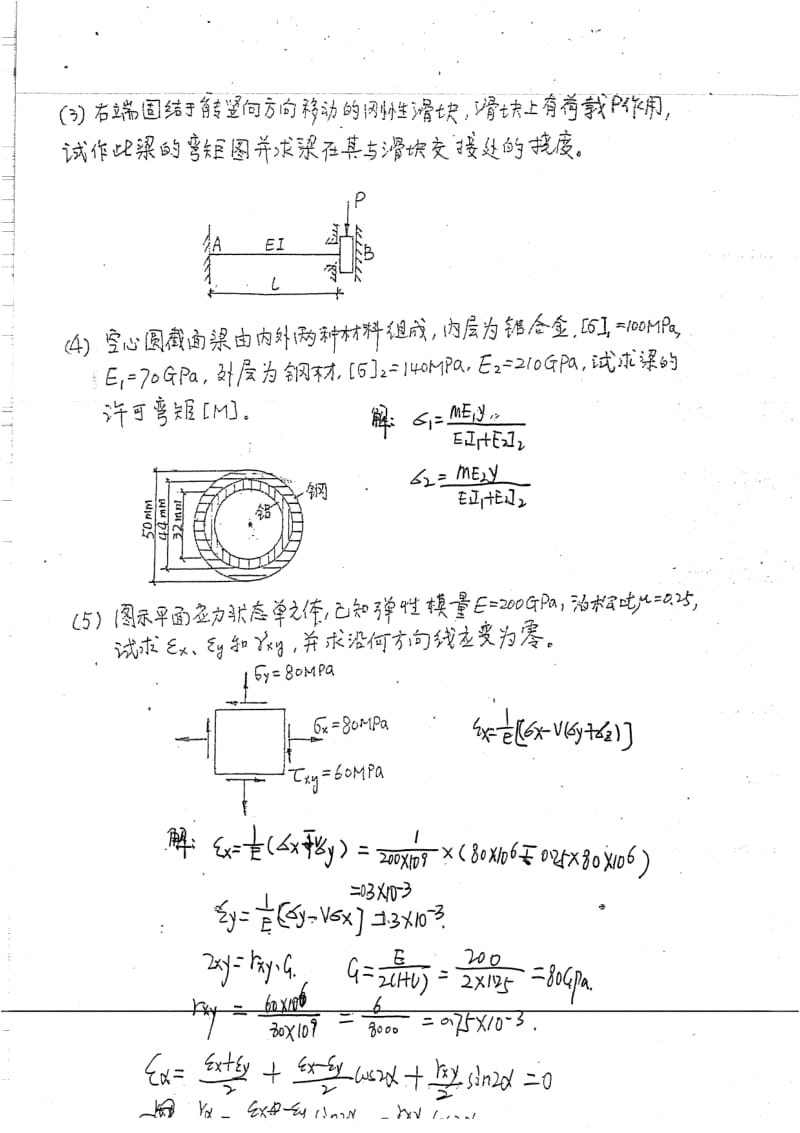 (3) 右端固结于能竖向方向移动的刚性滑块,滑块上有荷载P作用,
试作此梁的弯矩图并求梁在其与滑块交接处的挠度。
P
A
EI
B
L
(4) 空心圆截面梁由内外两种材料组成,内层为铝合金,[σ]₁=100MPa,
E₁=70GPa,外层为钢材,[σ]₂=140MPa,E₂=210GPa,试求梁的
许可弯矩[M]。
解: σ₁=ME₁y/(E₁I₁+E₂I₂)
σ₂=ME₂y/(E₁I₁+E₂I₂)
钢
铝
50mm
44mm
32mm
(5) 图示平面应力状态单元体,已知弹性模量E=200GPa,泊松比μ=0.25,
试求εx、εy和γxy,并求沿何方向线应变为零。
σy=80MPa
σx=80MPa
τxy=60MPa
εx=1/E[σx-ν(σy+σz)]
解: εx=1/E(σx-νσy)=1/(200×10⁹)×(80×10⁶-0.25×80×10⁶)
=0.3×10⁻³
εy=1/E[σy-νσx]=0.3×10⁻³.
τxy=γxy·G. G=E/2(1+ν)=200/(2×1.25)=80GPa.
γxy=60×10⁶/80×10⁹=6/8000=0.75×10⁻³.
εα=(εx+εy)/2+(εx-εy)/2 cos2α+γxy/2 sin2α=0